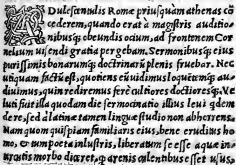 ADulescentulus Romæ priusquam athenas cō
cederem, quando erat a magistris auditio
nibusq; obeundis ocium, ad frontonem Cor
nelium uisendi gratia pergebam. Sermonibusq; eius
purissimis bonarumq; doctrinarū plenis fruebar. Nec
unquam factū est, quotiens eū uidimus loquētemq; au
diuimus, quin rediremus ferè cultiores doctioresq;. Ve
luti fuit illa quodam die sermocinatio illius leui qdem
de re, sed a latinæ tamen linguæ studio non abhorrens.
Nam quom quispiam familiaris eius, bene eruditus ho
mo, et tum poeta inlustris, liberatum se esse aquæ in
tercutis morbo diceret, q arenis calentibus esset usus,